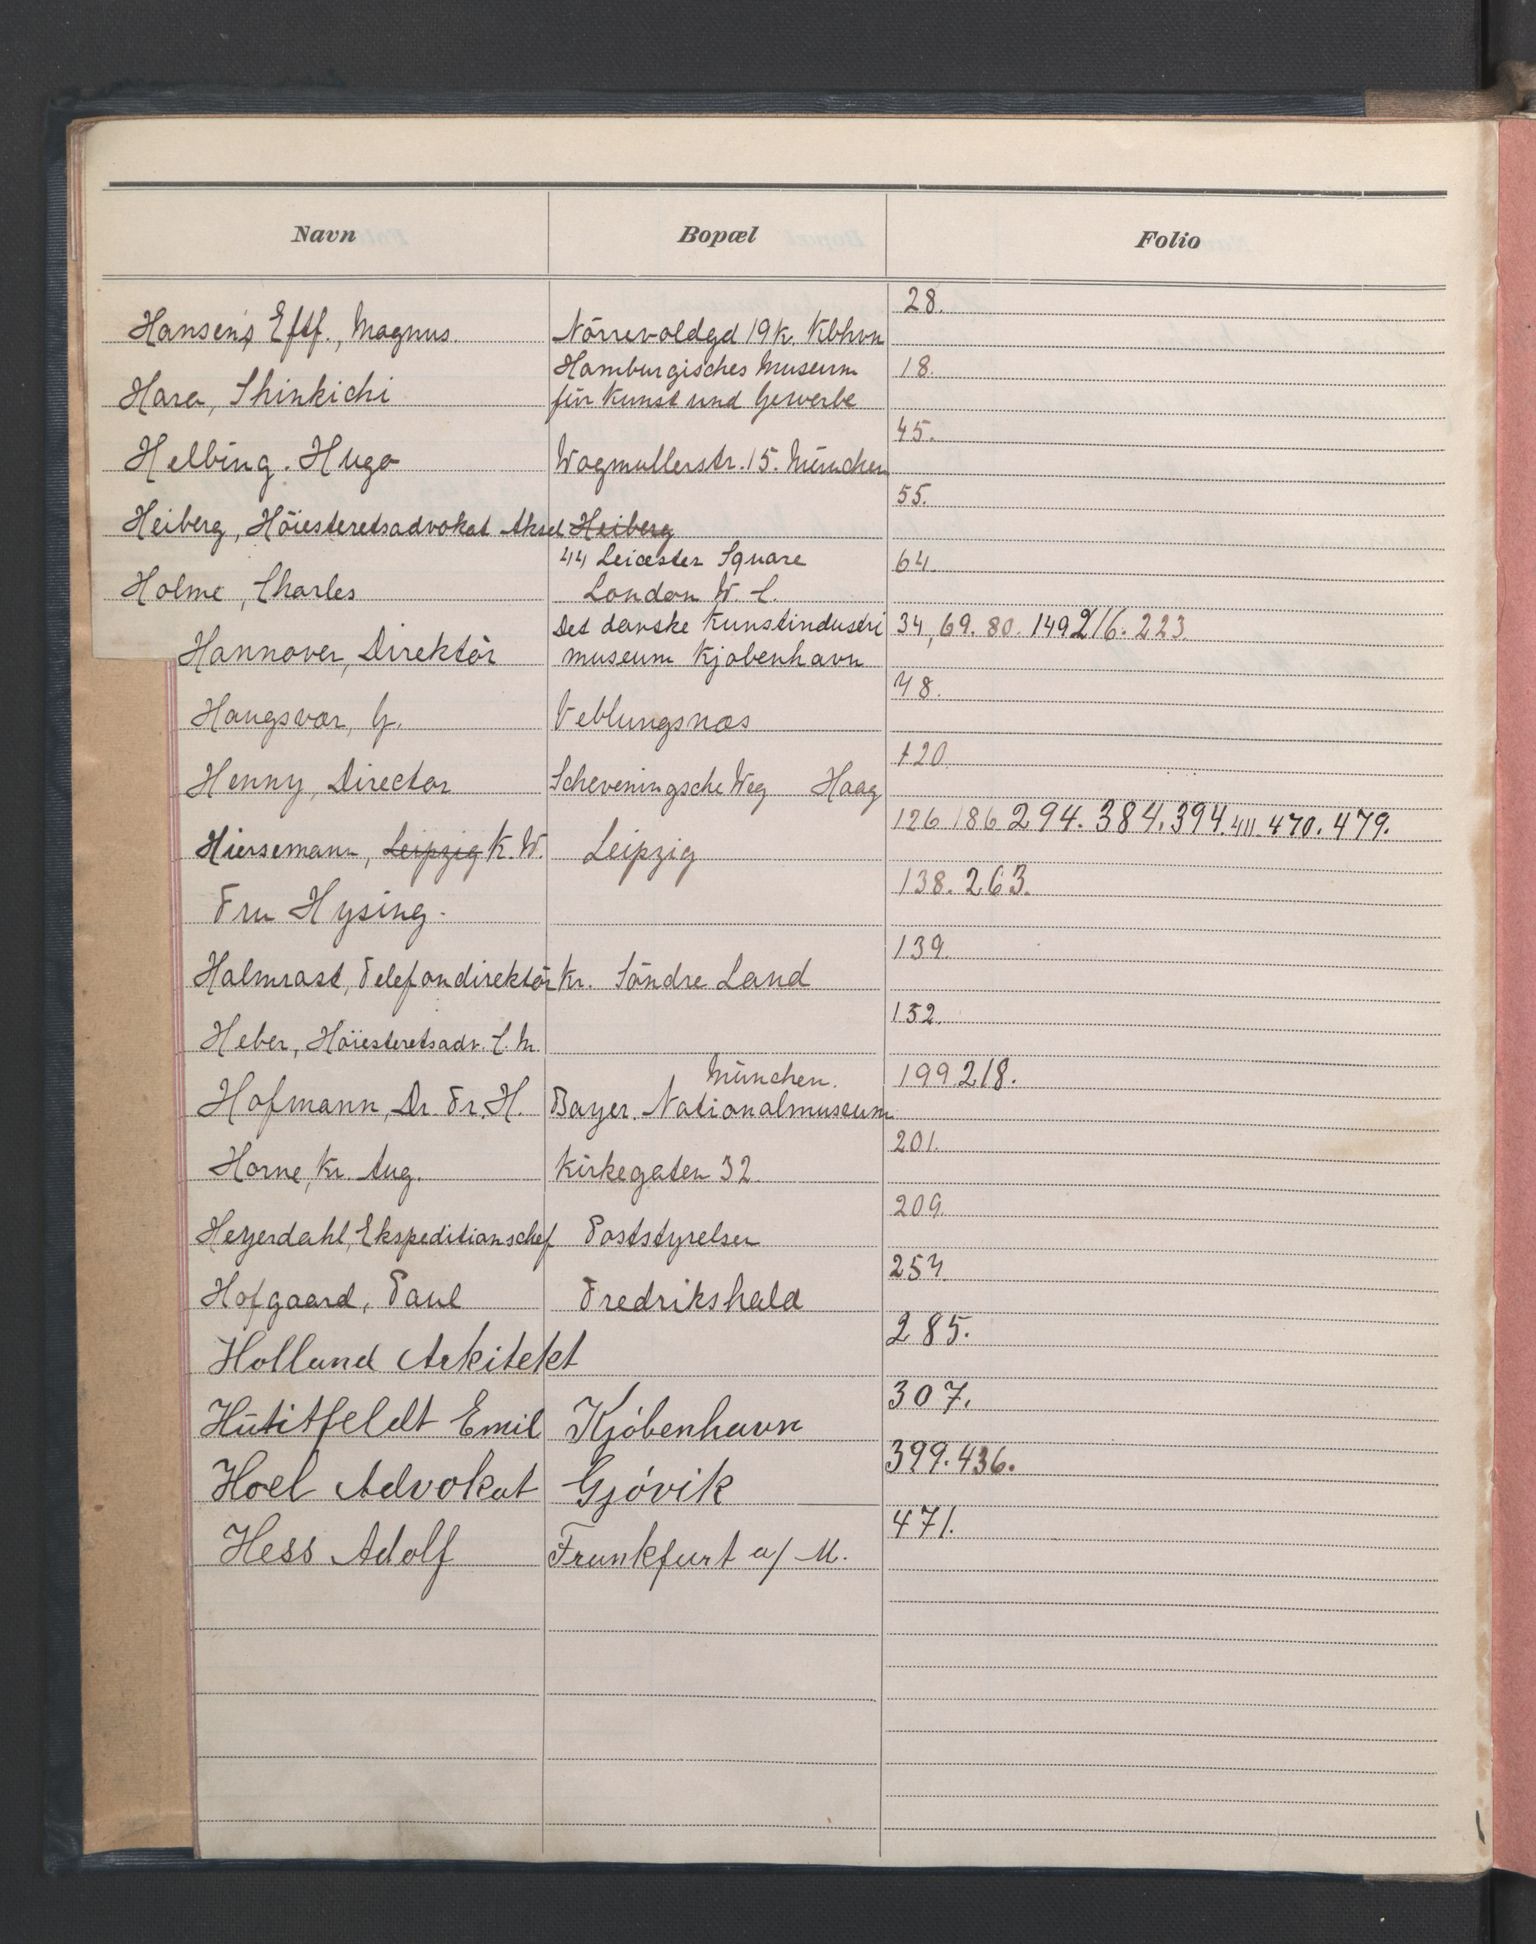 Navn Bopæl Folio
28.
Hansen's Eftf., Magnus. Nörrevoldgd 19 K. Kbhvn
Hamburgisches Museum 18.
Hara, Shinkichi für Kunst und Gewerbe
45.
Helbing. Hugo Wagmullerstr. 15. München
55.
Heiberg, Höiesteretsadvokat Aksel Heiberg
44 Leicester Square 64.
Holme, Charles London W. C.
Det danske Kunstindustri 34, 69. 80. 149 216. 223
Hannover, Direktör museum Kjøbenhavn
78.
Haugsvær, G. Veblungsnæs
120.
Henny, Director Scheveningsche Weg Haag
126 186 294. 384. 394. 411. 470. 479.
Hiersemann, Leipzig K. W. Leipzig
138. 263.
Fru Hysing.
139.
Halmrast, Telefondirektör Kr. Söndre Land
152.
Heber, Höiesteretsadv. C. M.
München. 199 218.
Hofmann, Dr Fr. H. Bayer. Nationalmuseum
201.
Horne, Kr. Aug. Kirkegaten 32.
209.
Heyerdahl, Ekspeditionschef Poststyrelsen
257.
Hofgaard, Paul Fredrikshald
285.
Holland Arkitekt
307.
Hütitfeldt Emil Kjöbenhavn
399. 436.
Hoel Advokat Gjövik
471.
Hess Adolf Frankfurt a/ M.